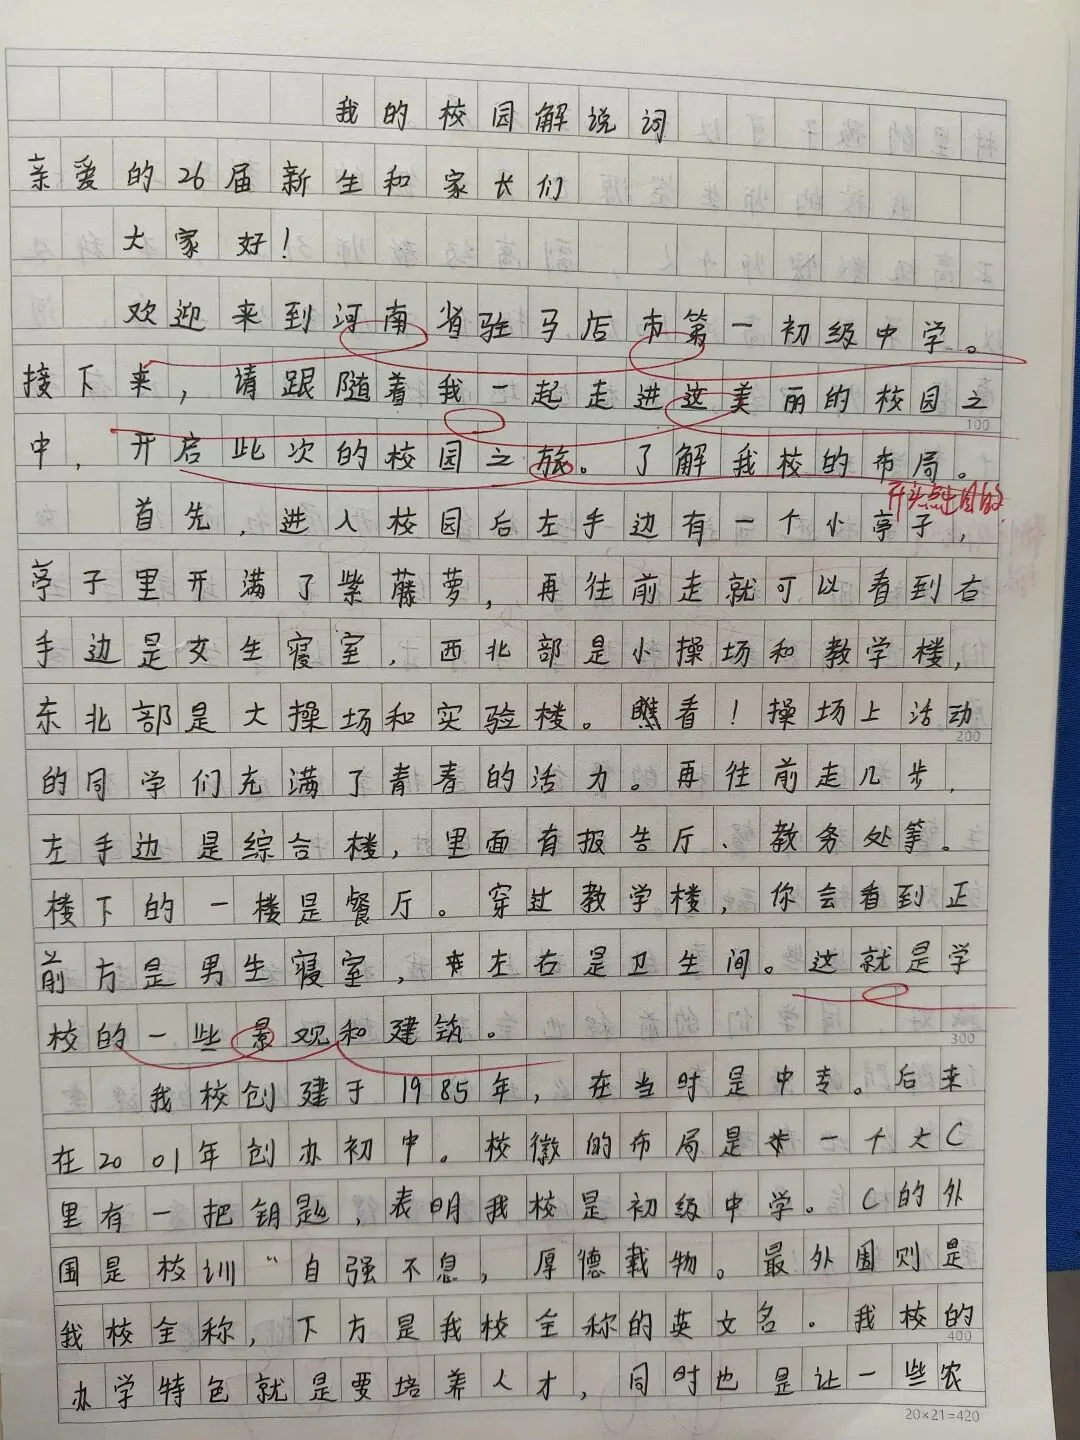 我的校园解说词
亲爱的26届新生和家长们
大家好!
欢迎来到河南省驻马店市第一初级中学。
接下来,请跟随着我一起走进这美丽的校园之
100
中,开启此次的校园之旅。了解我校的布局。
开头点出目的
首先,进入校园后左手边有一个小亭子,
亭子里开满了紫藤萝,再往前走就可以看到右
手边是女生寝室,西北部是小操场和教学楼,
东北部是大操场和实验楼。瞧看!操场上活动
200
的同学们充满了青春的活力。再往前走几步,
左手边是综合楼,里面有报告厅、教务处等。
楼下的一楼是餐厅。穿过教学楼,你会看到正
前方是男生寝室,左右是卫生间。这就是学
校的一些景观和建筑。
300
我校创建于1985年,在当时是中专。后来
在2001年创办初中。校徽的布局是一个大C
里有一把钥匙,表明我校是初级中学。C的外
围是校训“自强不息,厚德载物。最外围则是
我校全称,下方是我校全称的英文名.我校的
400
办学特色就是要培养人才,同时也是让一些农
20×21=420